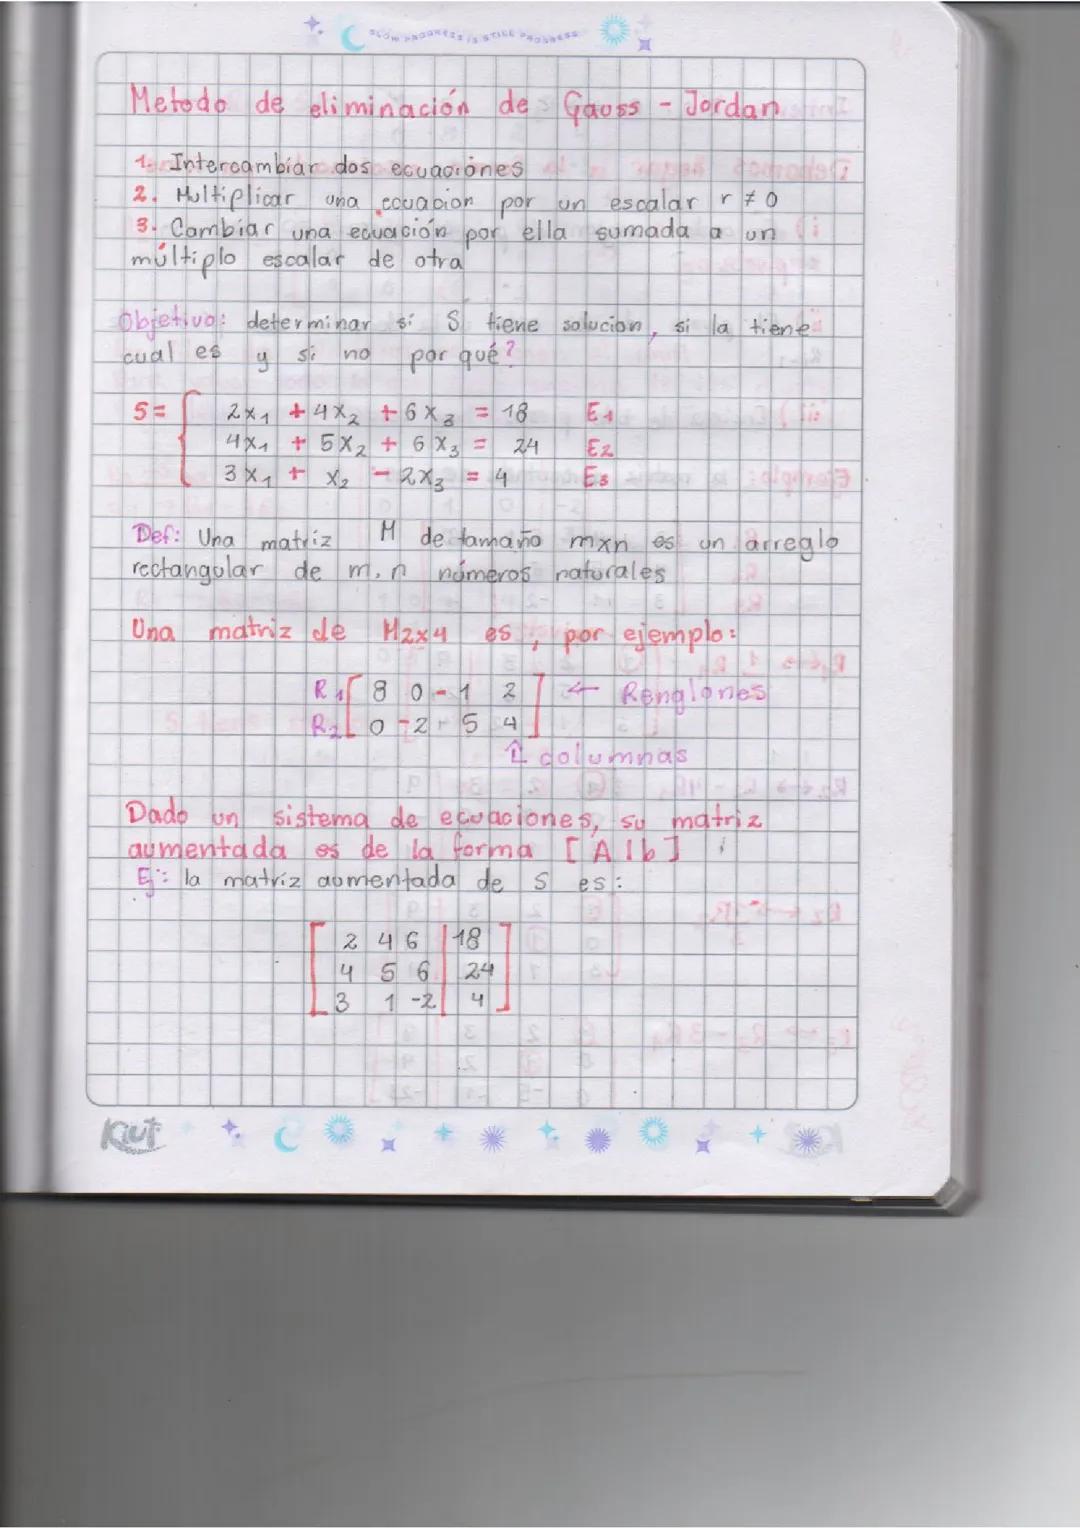 SLOW PROGRESS IS STILL PROGRESS
Metodo de eliminación de Gauss - Jordan
1. Intercambiar dos ecuaciones
2. Multiplicar una ecuación por un escalar r ≠ 0
3. Cambiar una ecuación por ella sumada a un
múltiplo escalar de otra
Objetivo: determinar si S tiene solucion, si la tiene
cual es y si no por qué?
S = { 2x₁ + 4x₂ + 6x₃ = 18 E₁
4x₁ + 5x₂ + 6x₃ = 24 E₂
3x₁ + x₂ - 2x₃ = 4 E₃
Def: Una matriz M de tamaño mxn es un arreglo
rectangular de m.n números naturales
Una matriz de M2x4 es, por ejemplo:
R₁ [ 8 0 -1 2 ] ← Renglones
R₂ [ 0 -2 5 4 ]
⇑ columnas
Dado un sistema de ecuaciones, su matriz
aumentada es de la forma [A|b]
Ej: la matriz aumentada de S es:
[ 2 4 6 | 18 ]
[ 4 5 6 | 24 ]
[ 3 1 -2 | 4 ]
Kiut